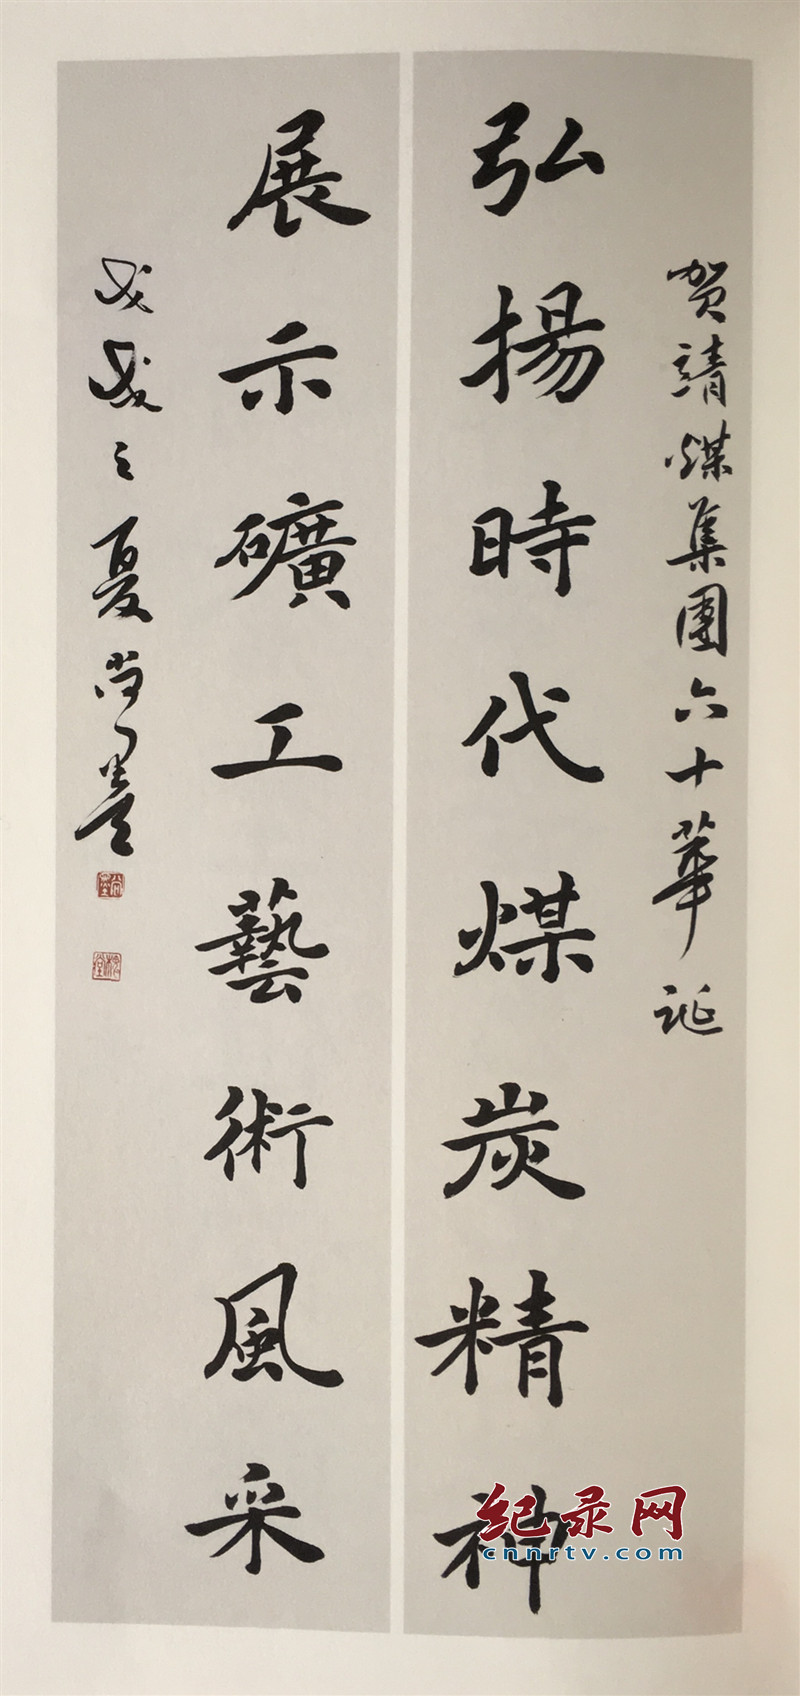 贺靖煤集團六十華诞
弘揚時代煤炭精神
展示礦工藝術風采
戊戌之夏尚墨
纪录网
cnnrtv.com